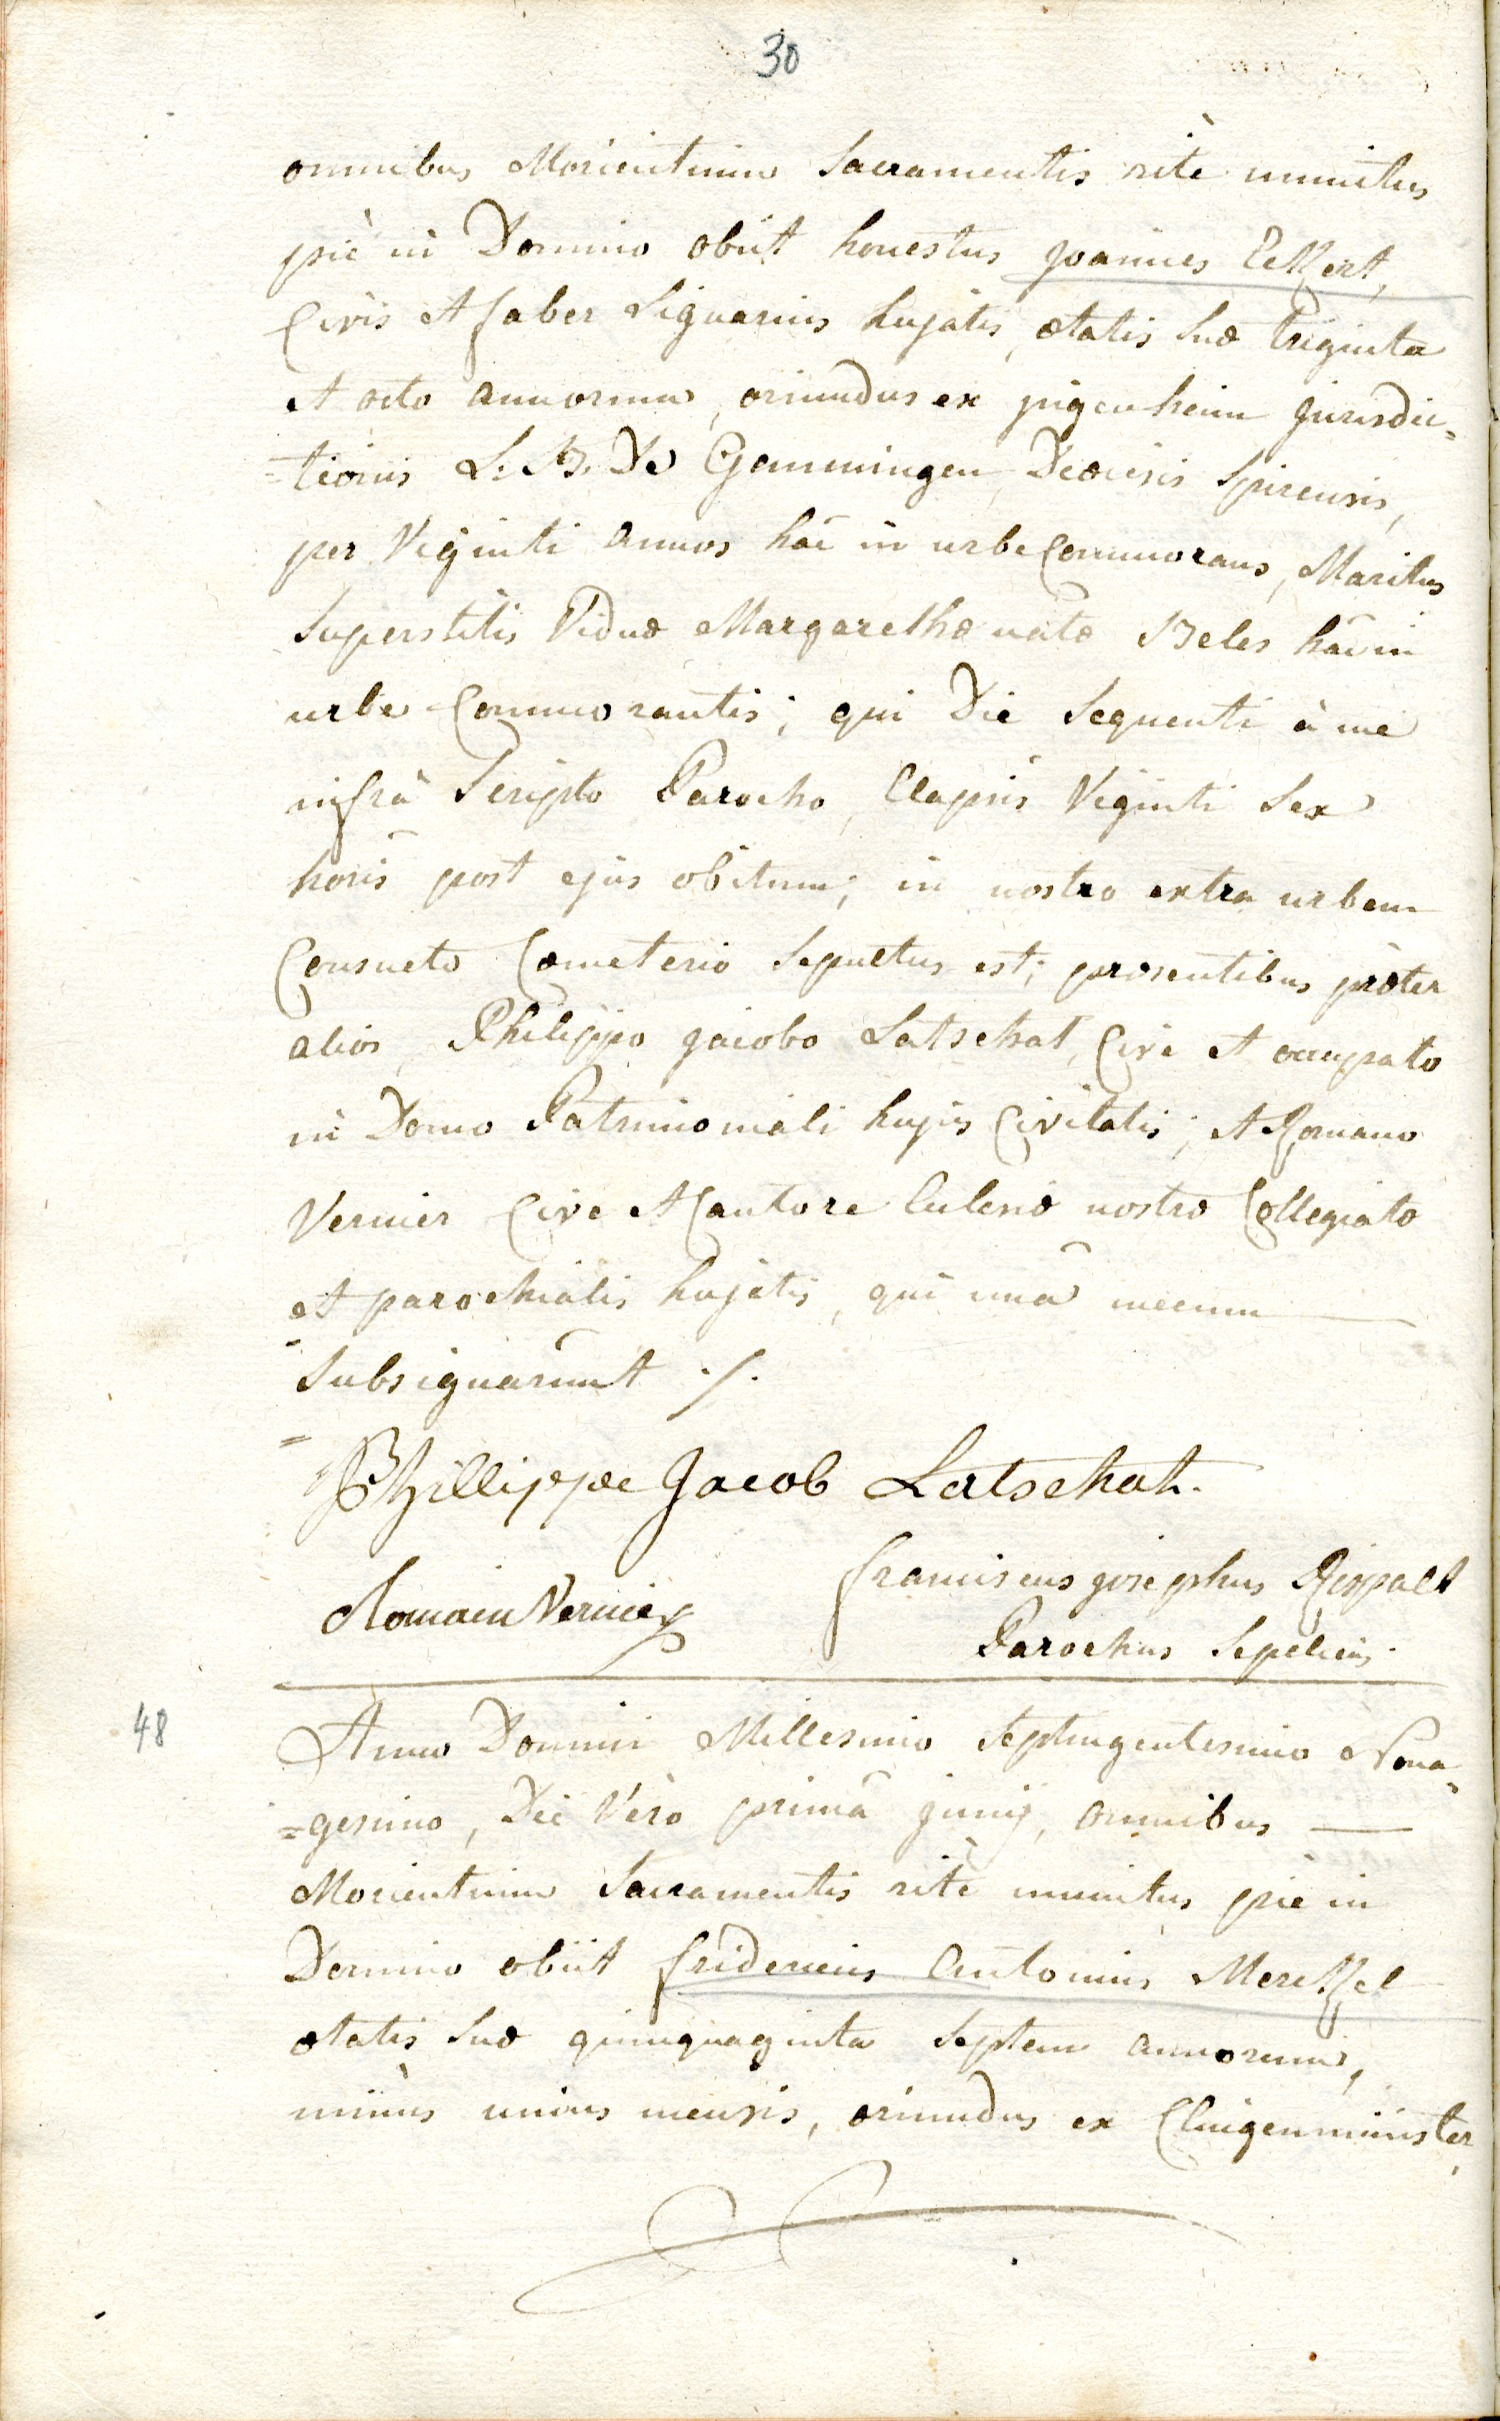 30
omnibus Morientium Sacramentis ritè munitus
piè in Domino obiit honestus Joannes Eckert,
Civis et faber Lignarius hujatis, ætatis suæ triginta
et octo annorum, oriundus ex jngenheim Jurisdic=
=tionis L. B. De Gemmingen, Diœcesis Spirensis,
per Viginti annos hâc in urbe Commorans, Maritus
Superstitis Viduæ Margarethæ natæ Beles hâc in
urbe Commorantis; qui Die Sequenti à me
infrà Scripto Parocho, Elapsis Viginti Sex
horis post ejus obitum, in nostro extra urbem
Consueto Cœmeterio Sepultus est; præsentibus præter
alios, Philippo Jacobo Latschat, Cive et occupato
in Domo Patrimoniali hujus Civitatis; et Romano
Vernier Cive et Cantore Eclesiæ nostræ Collegiatæ
et parochialis hujatis, qui unà mecum
Subsignarunt ./.
Phillippe Jacob Latschat.
Romain Vernier
franciscus josephus
Parochus Sepeliens
48
Anno Domini Millesimo Septingentesimo Nona=
=gesimo, Die Verò primâ junij, omnibus
Morientium Sacramentis ritè munitus piè in
Domino obiit fridericus Antonius
ætatis suæ quinquaginta Septem annorum,
minùs unius mensis, oriundus ex Clingenmünster,